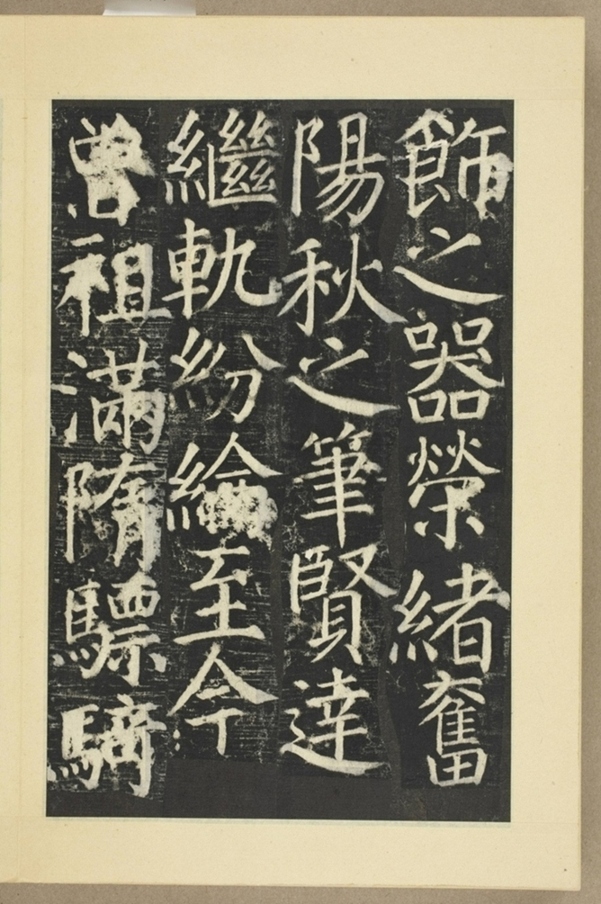 飾之器榮緒奮
陽秋之筆賢達
繼軌紛綸至今
曾祖滿隋驃騎